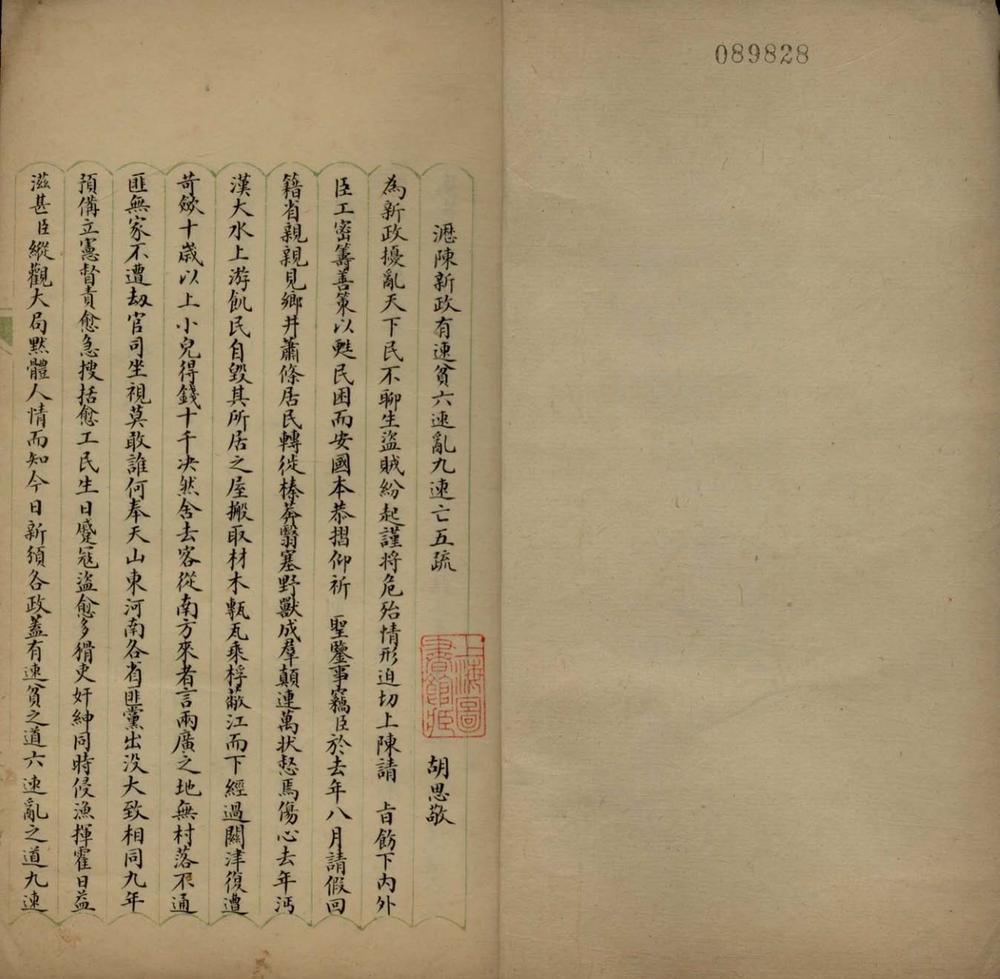 089828
瀝陳新政有速貧六速亂九速亡五疏
胡思敬
上海圖書館藏
為新政擾亂天下民不聊生盜賊紛起謹將危殆情形迫切上陳請 旨飭下内外
臣工密籌善策以甦民困而安國本恭摺仰祈 聖鑒事竊臣於去年八月請假回
籍省親親見鄉井蕭條居民轉徙榛莽翳塞野獸成羣顛連萬狀惄焉傷心去年沔
漢大水上游飢民自毀其所居之屋搬取材木甎瓦乘桴蔽江而下經過關津復遭
苛斂十歲以上小兒得錢十千决然舍去客從南方來者言兩廣之地無村落不通
匪無家不遭劫官司坐視莫敢誰何奉天山東河南各省匪黨出没大致相同九年
預備立憲督責愈急搜括愈工民生日蹙寇盜愈多猾吏奸紳同時侵漁揮霍日益
滋甚臣縱觀大局默體人情而知今日新頒各政蓋有速貧之道六速亂之道九速